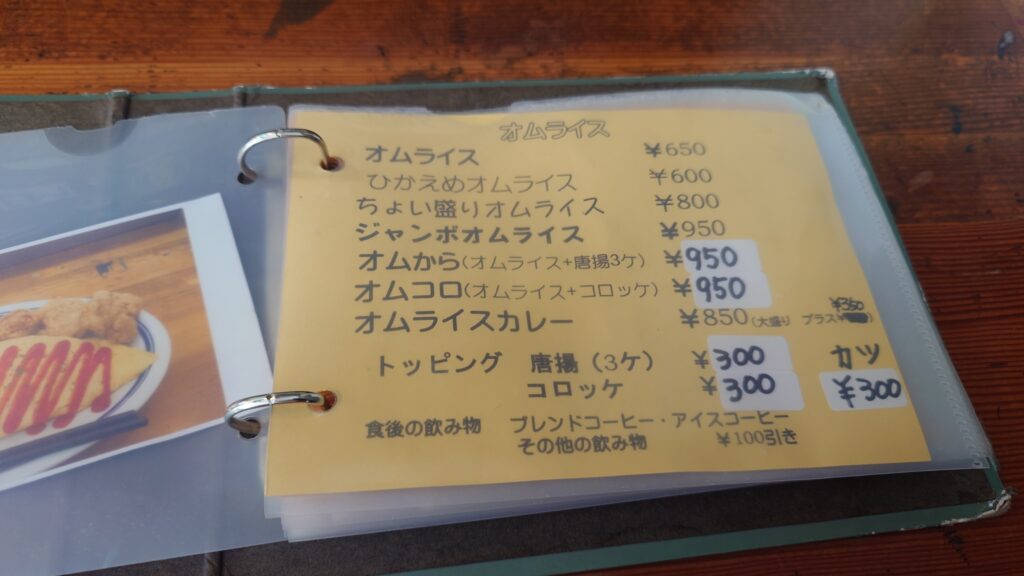 オムライス
オムライス ¥650
ひかえめオムライス ¥600
ちょい盛りオムライス ¥800
ジャンボオムライス ¥950
オムから(オムライス+唐揚3ケ) ¥950
オムコロ(オムライス+コロッケ) ¥950
¥350
オムライスカレー ¥850(大盛り プラス)
トッピング 唐揚(3ケ) ¥300 カツ
コロッケ ¥300 ¥300
食後の飲み物 ブレンドコーヒー・アイスコーヒー
その他の飲み物 ¥100引き